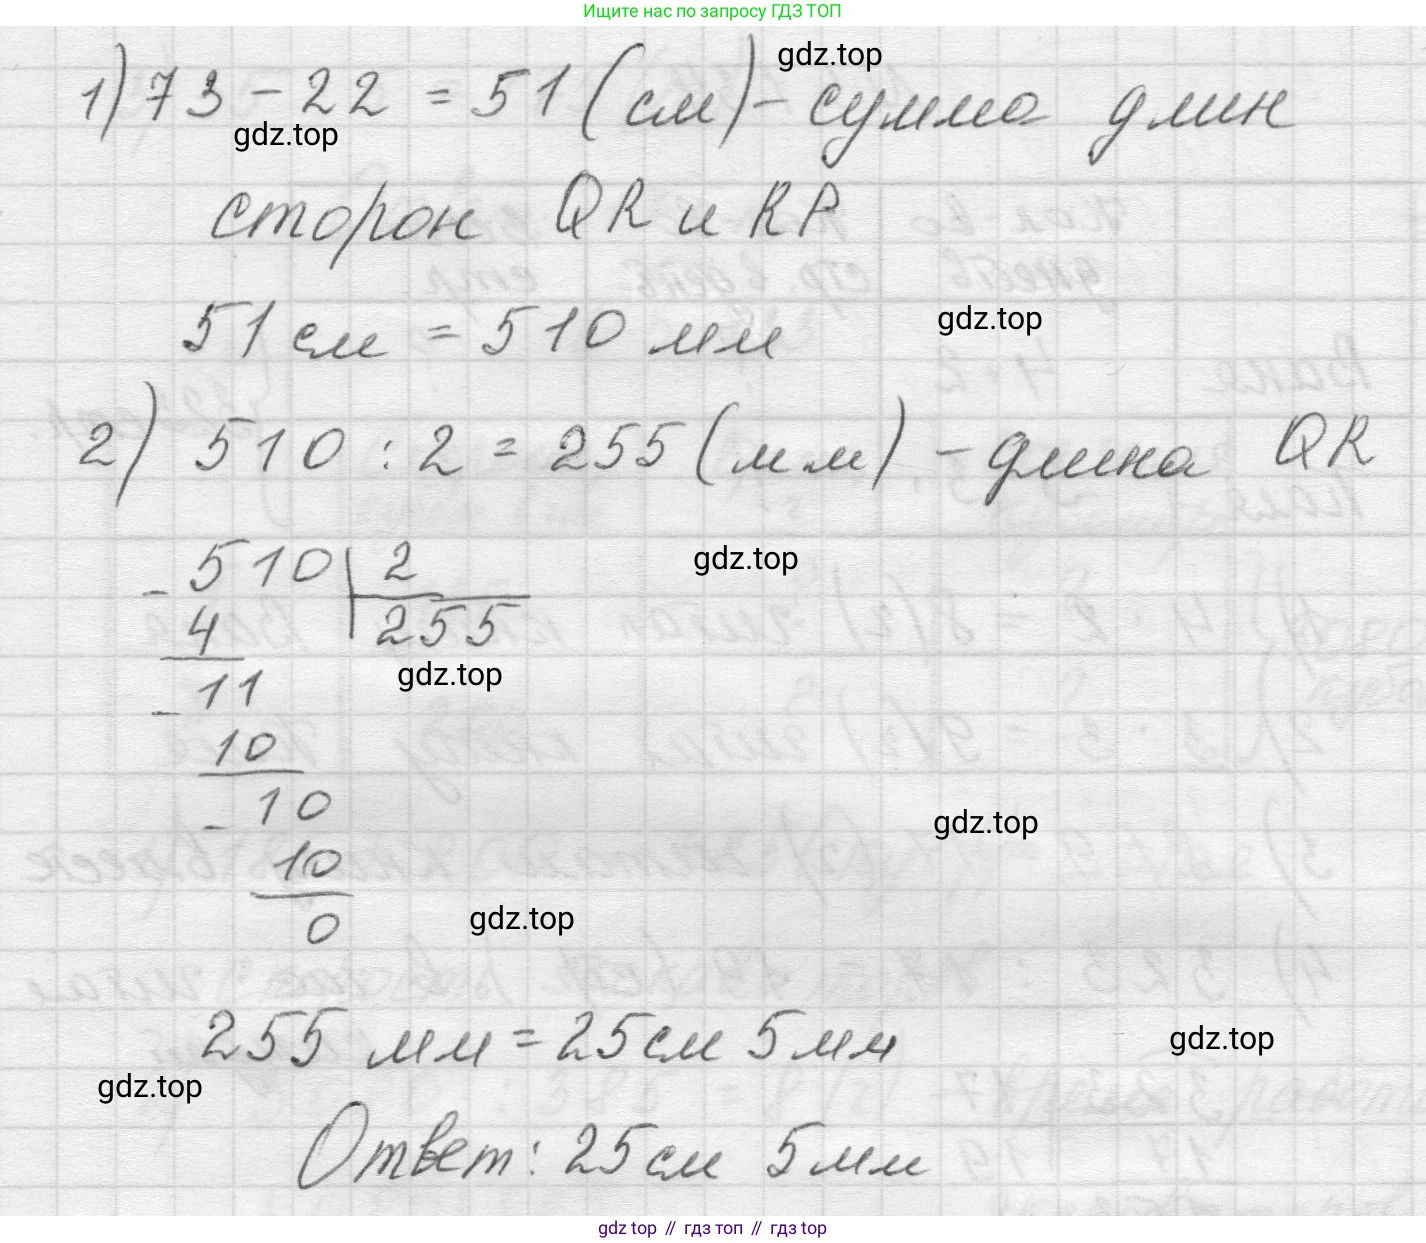 Ищите нас по запросу ГДЗ ТОП
gdz.top
1) 73 - 22 = 51 (см) - сумма длин
gdz.top
сторон QR и RP
51 см = 510 мм
gdz.top
2) 510 : 2 = 255 (мм) - длина QR
510 2
gdz.top
- 4 255
gdz.top
- 11
10
- 10
gdz.top
10
0
gdz.top
255 мм = 25 см 5 мм
gdz.top
gdz.top
Ответ: 25 см 5 мм
gdz top // гдз топ // gdz top